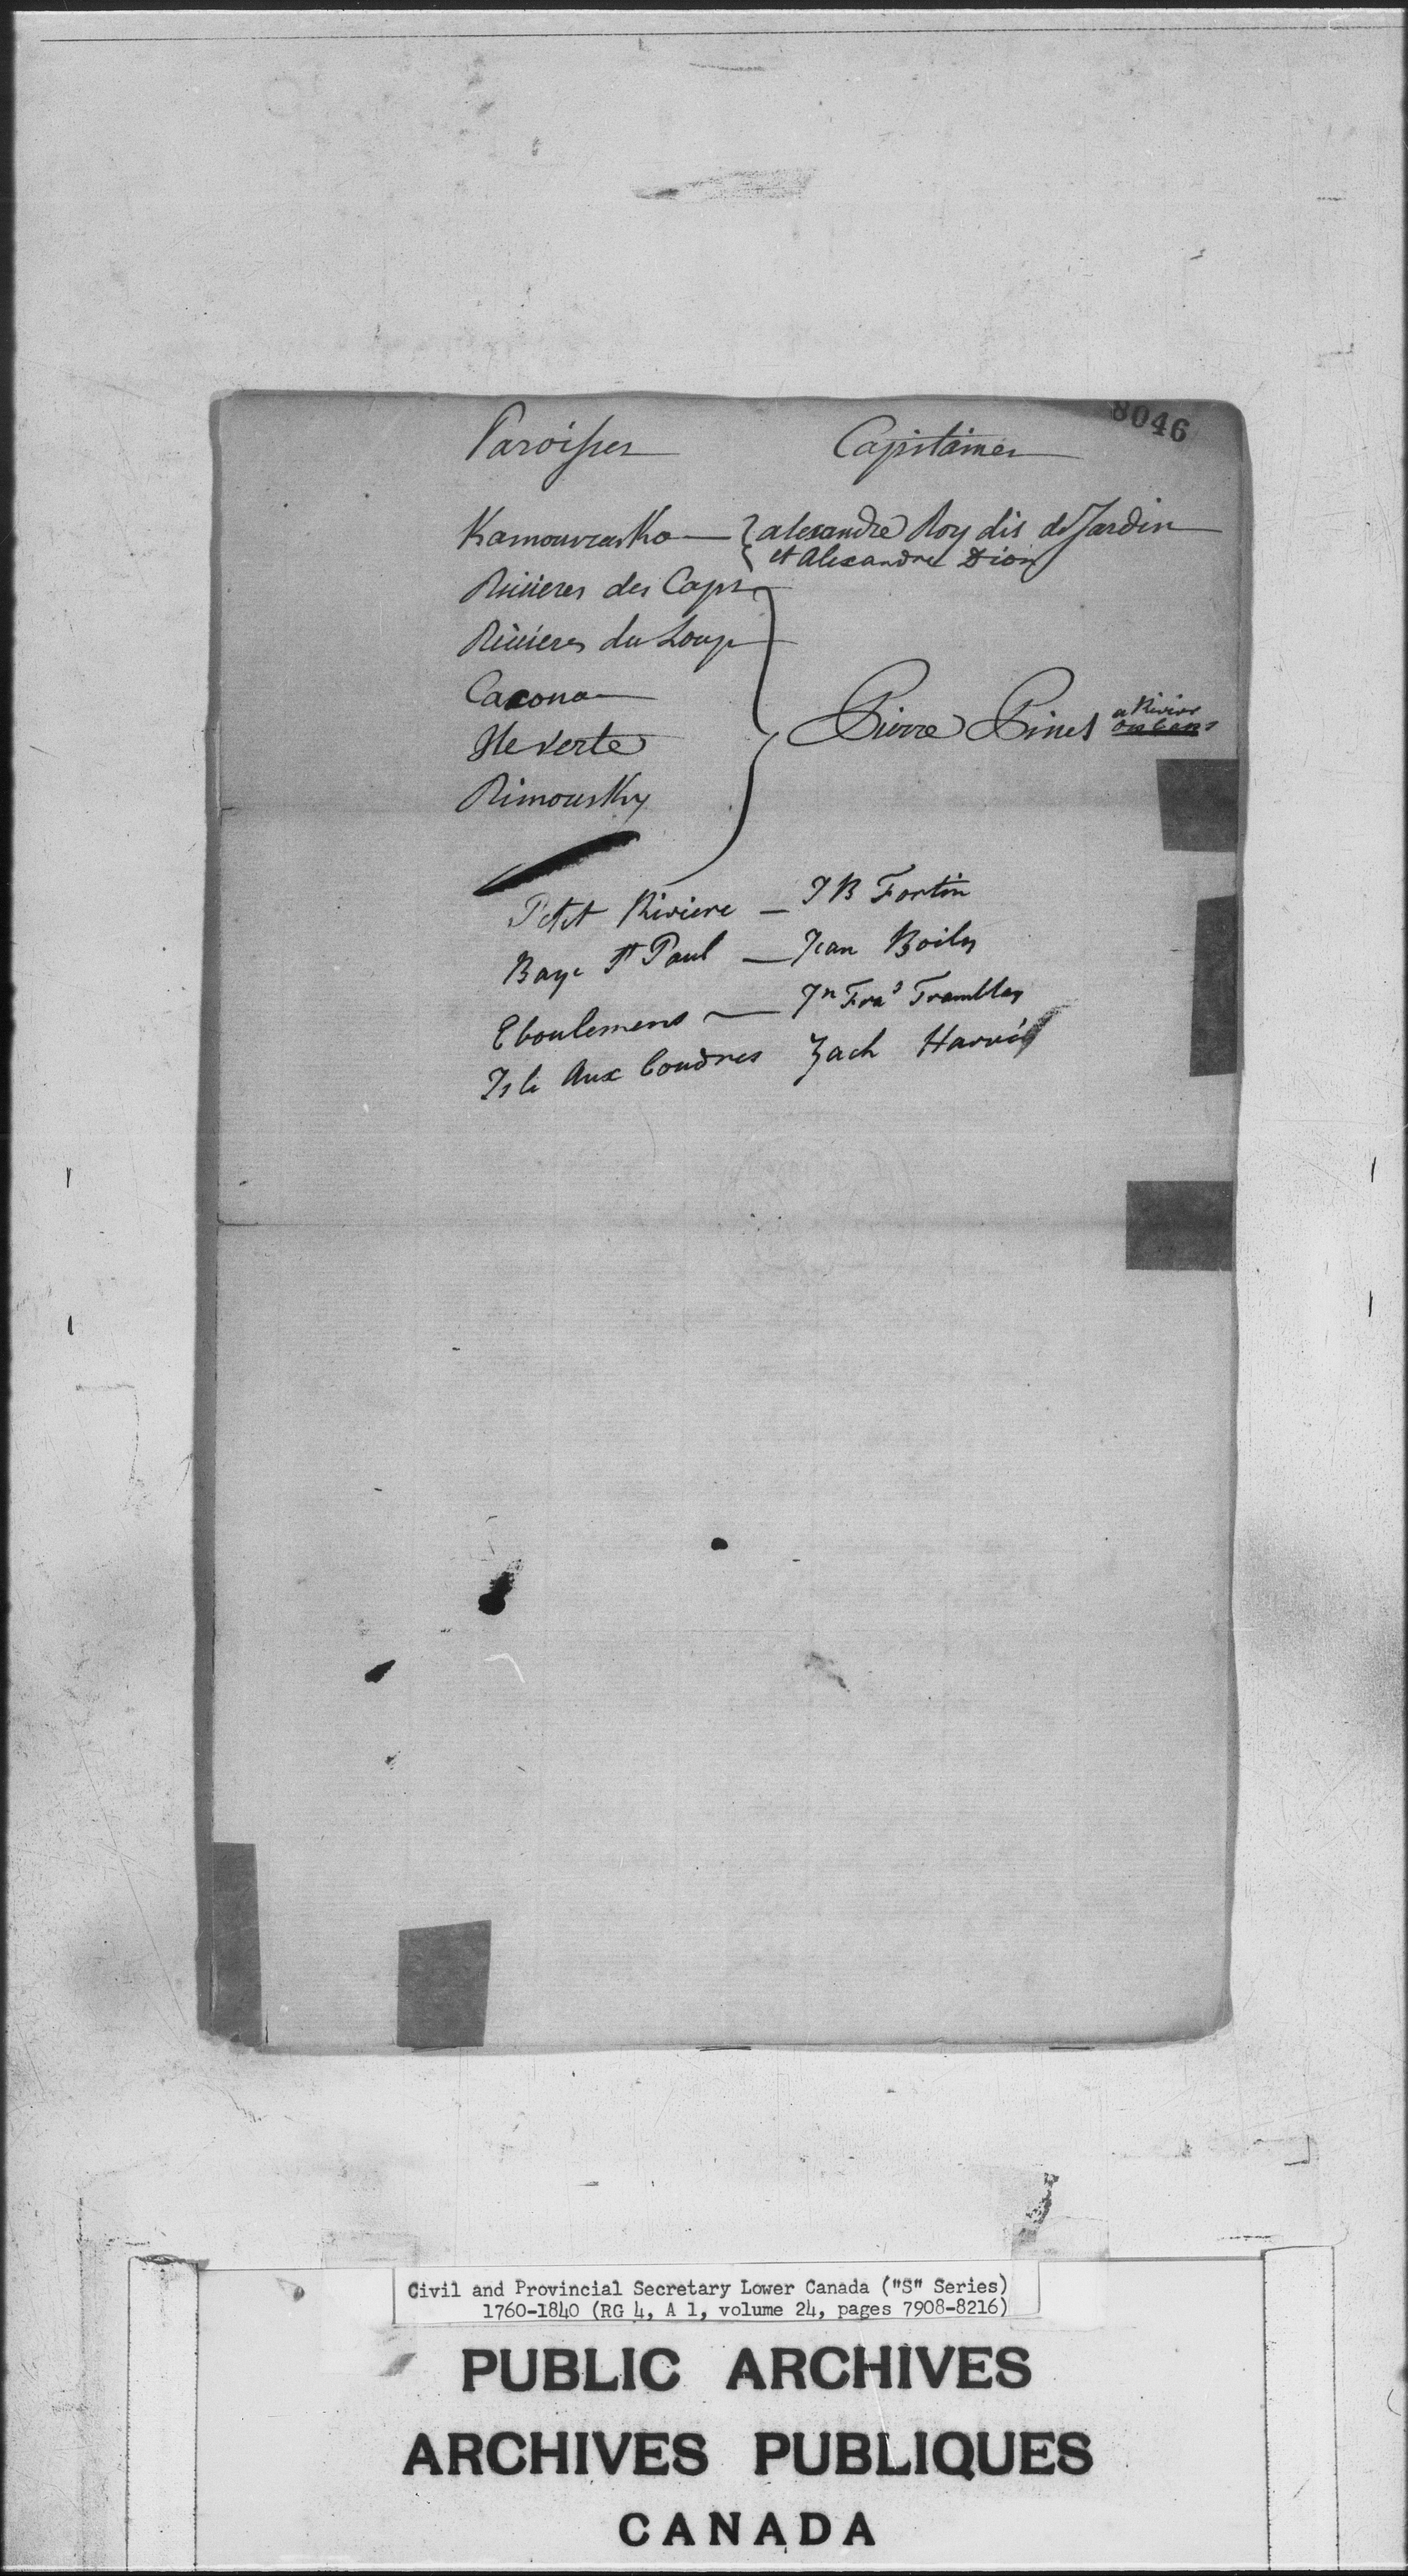 8046
Paroisses Capitaines
Kamouraska — { alexandre Roy dis deJardin
et Alexandre Dion
Rivieres des Caps
Rivieres du Loup
Cacona
Ile verte
Pierre Pinet a Rivier
Rimousky
Petit Riviere — J B Fortin
Baye St Paul — Jean Boily
Eboulemens — Jn Fras Tramblay
Isle Aux Coudres Zach Harvé
Civil and Provincial Secretary Lower Canada ("S" Series)
1760-1840 (RG 4, A 1, volume 24, pages 7908-8216)
PUBLIC ARCHIVES
ARCHIVES PUBLIQUES
CANADA